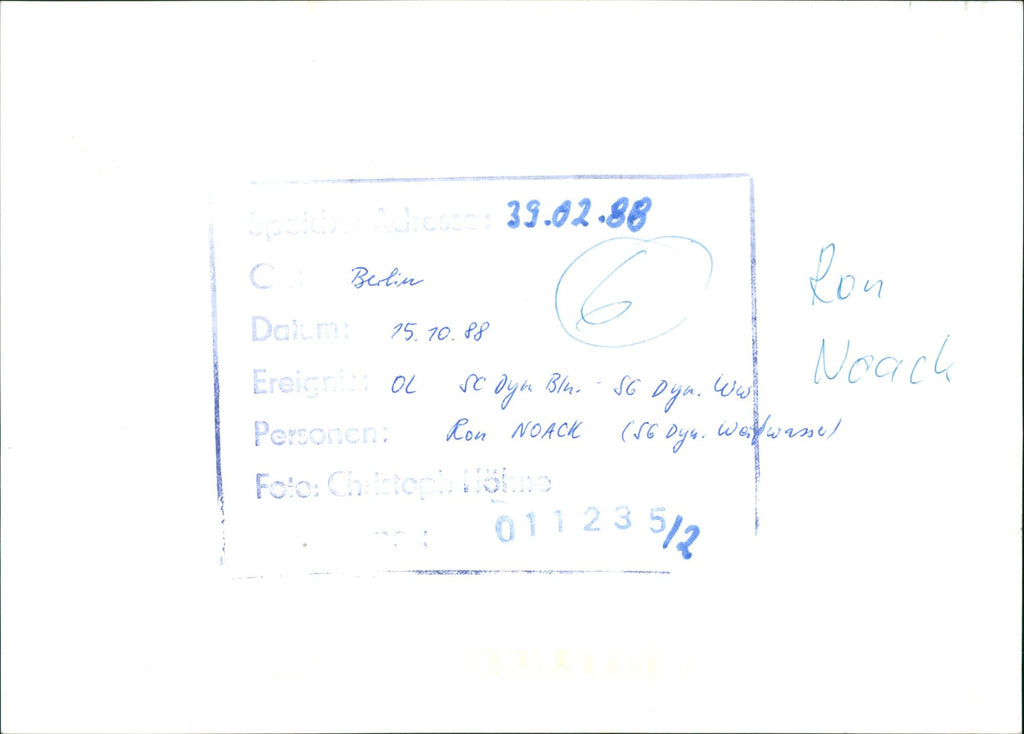 Adresse: 39.02.88
6
Berlin
Datum: 15.10.88
Ereignis: OL SC Dyn Bln. - SG Dyn. Ww
Personen: Ron NOACK (SG Dyn. Weißwasser)
Foto: Christoph Höhne
011235/2
Ron
Noack